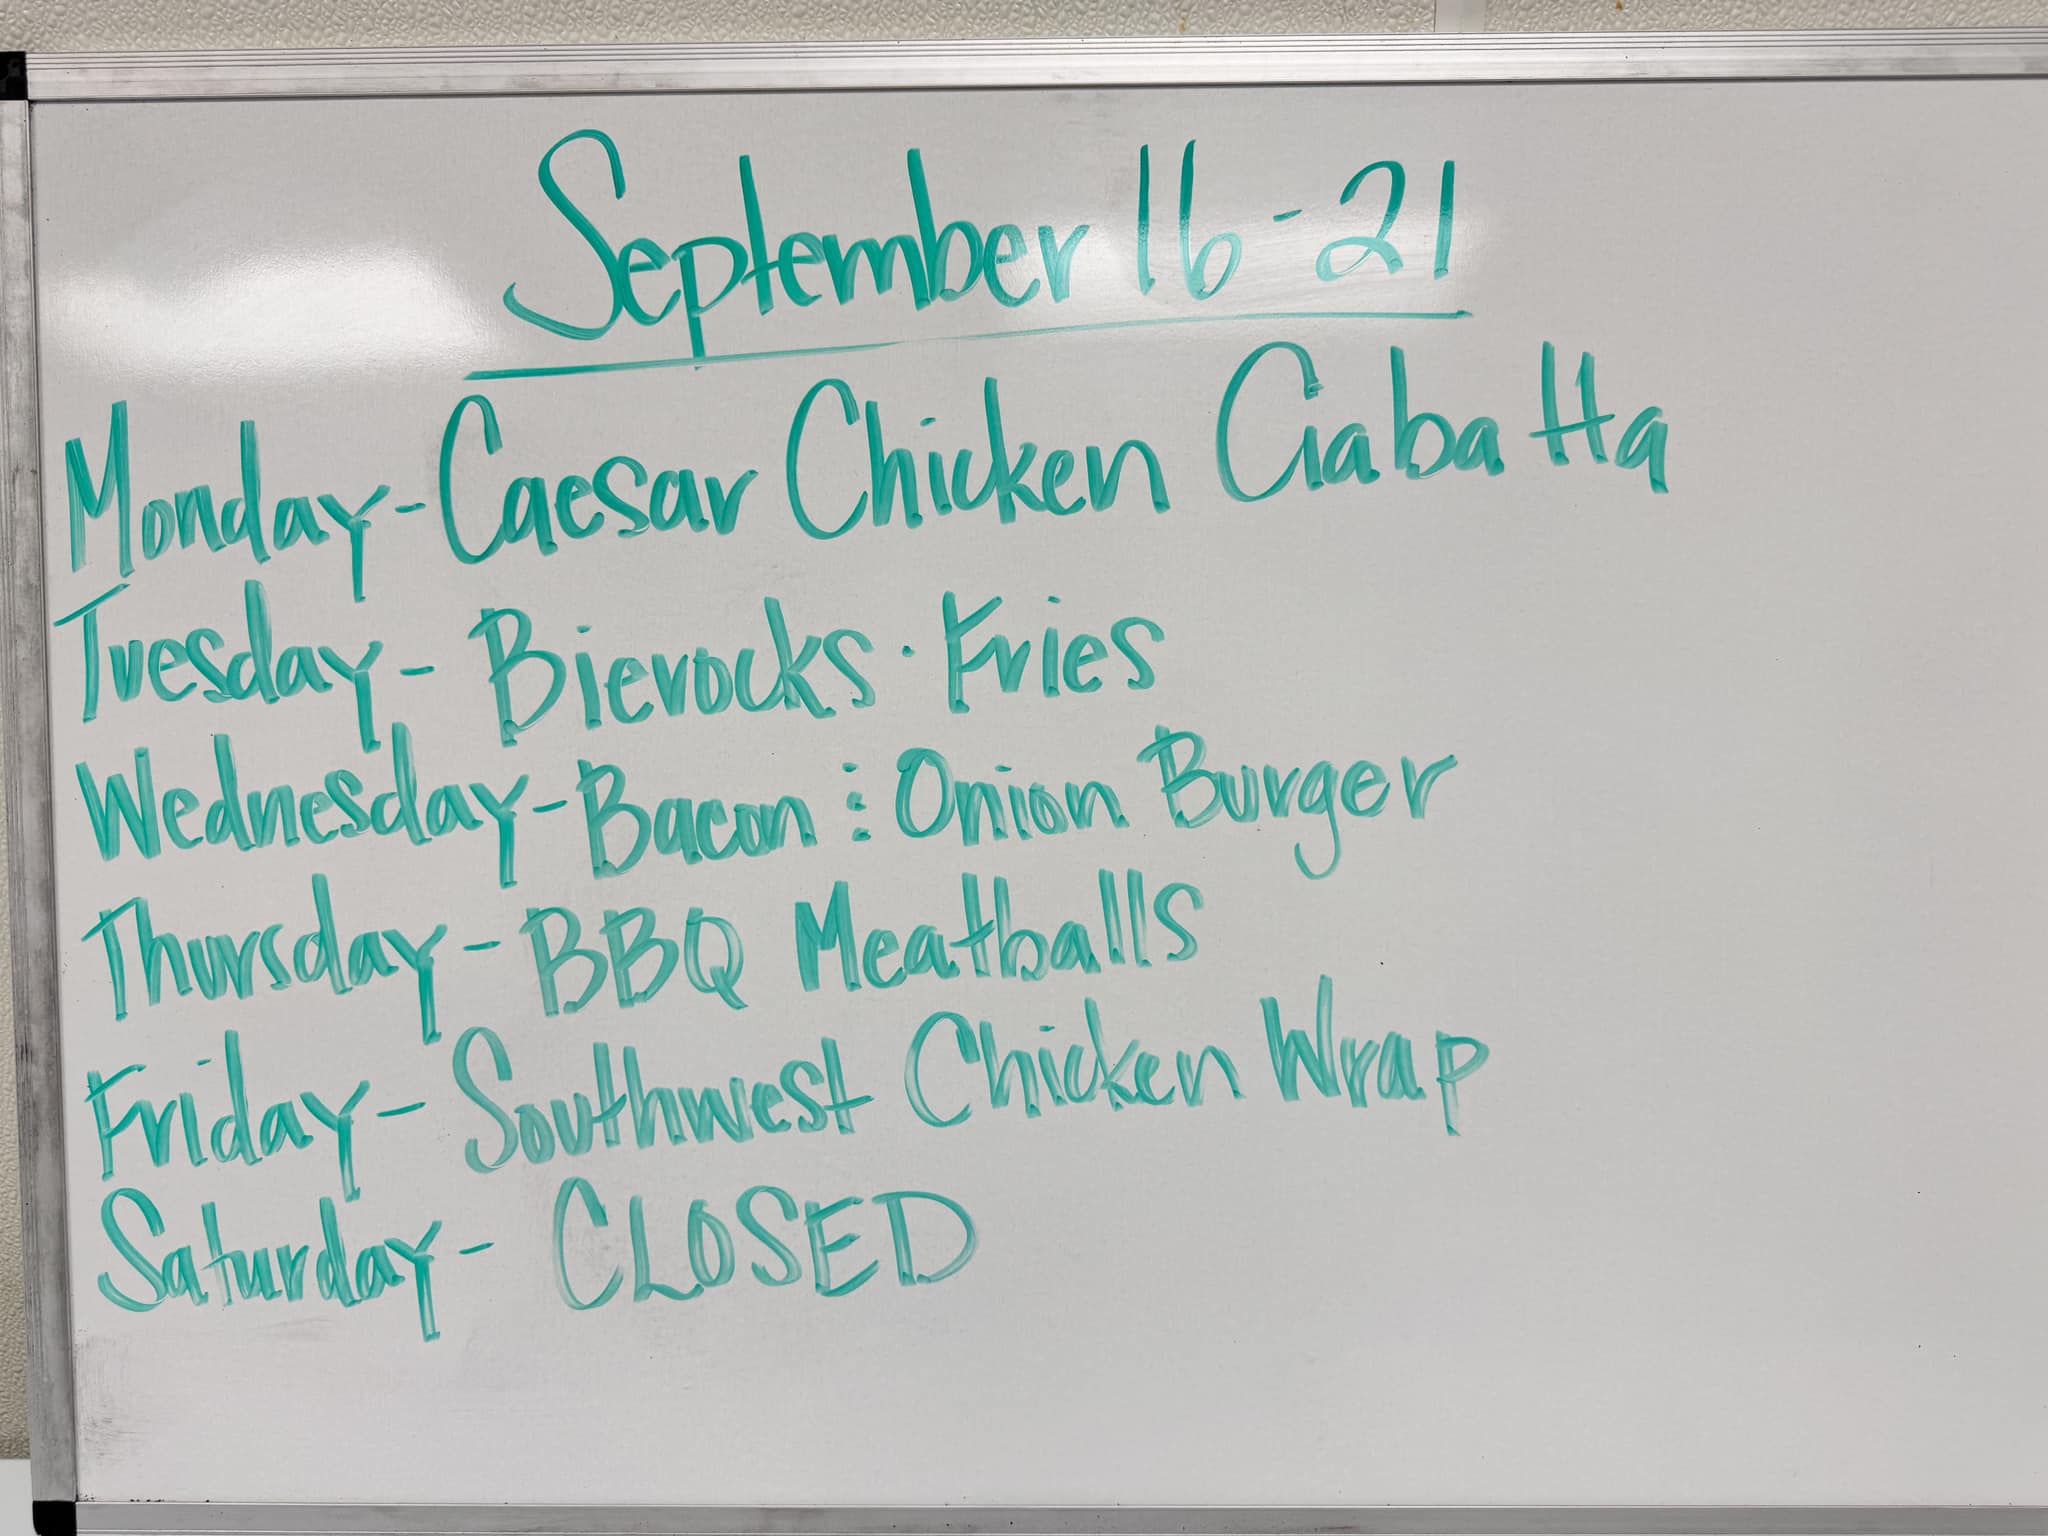 September 16-21
Monday- Caesar Chicken Ciabatta
Tuesday- Bierocks · Fries
Wednesday- Bacon ⋮ Onion Burger
Thursday- BBQ Meatballs
Friday- Southwest Chicken Wrap
Saturday- CLOSED